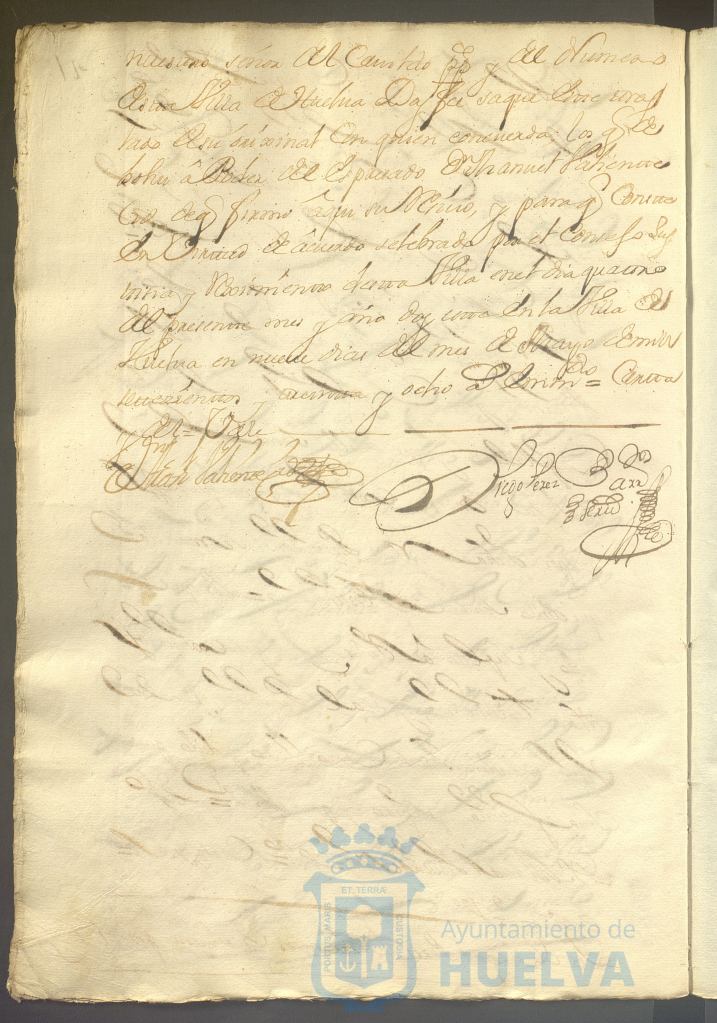 nuestro señor del Cavildo pp.co y del Numero
desta Villa de Huelva Doy fee saqué este tras
lado de su orixinal con quien concuerda los q.e de
bolví â Poder del Expresado D.n Manuel
de q.e firmó aqui su Recivo, y para q.e Conste
En Virtud de acuerdo selebrado por el Consejo Jus
ticia y Reximiento desta Villa en el dia quatro
del presente mes y año doy este En la Villa de
Huelva en nueve dias del mes de Mayo de mill
setezientos y treinta y ocho
y del = Vale
Diego Perez
ET TERRÆ
PORTUS MARIS
CUSTODIA
Ayuntamiento de
HUELVA